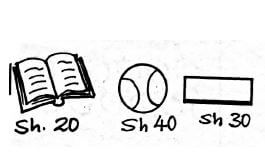 Sh. 20 Sh 40 Sh 30